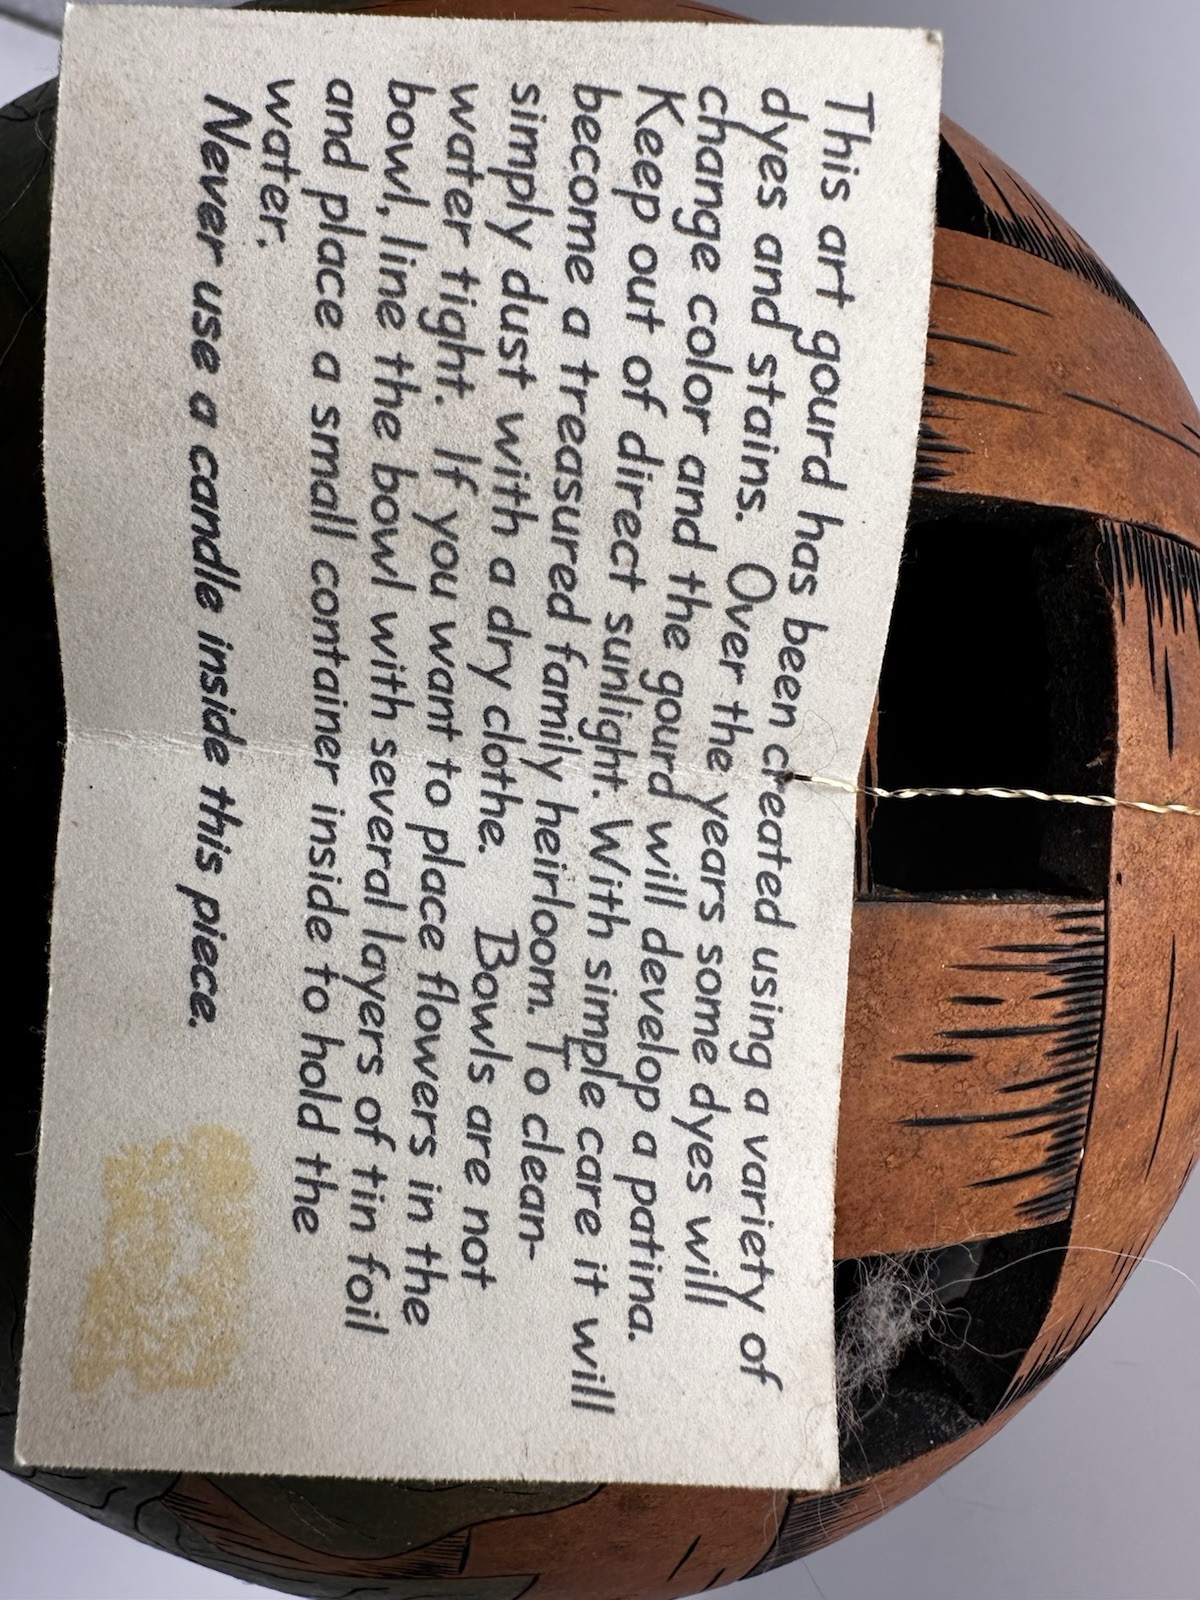 This art gourd has been created using a variety of
dyes and stains. Over the years some dyes will
change color and the gourd will develop a patina.
Keep out of direct sunlight. With simple care it will
become a treasured family heirloom. To clean-
simply dust with a dry clothe. Bowls are not
water tight. If you want to place flowers in the
bowl, line the bowl with several layers of tin foil
and place a small container inside to hold the
water.
Never use a candle inside this piece.